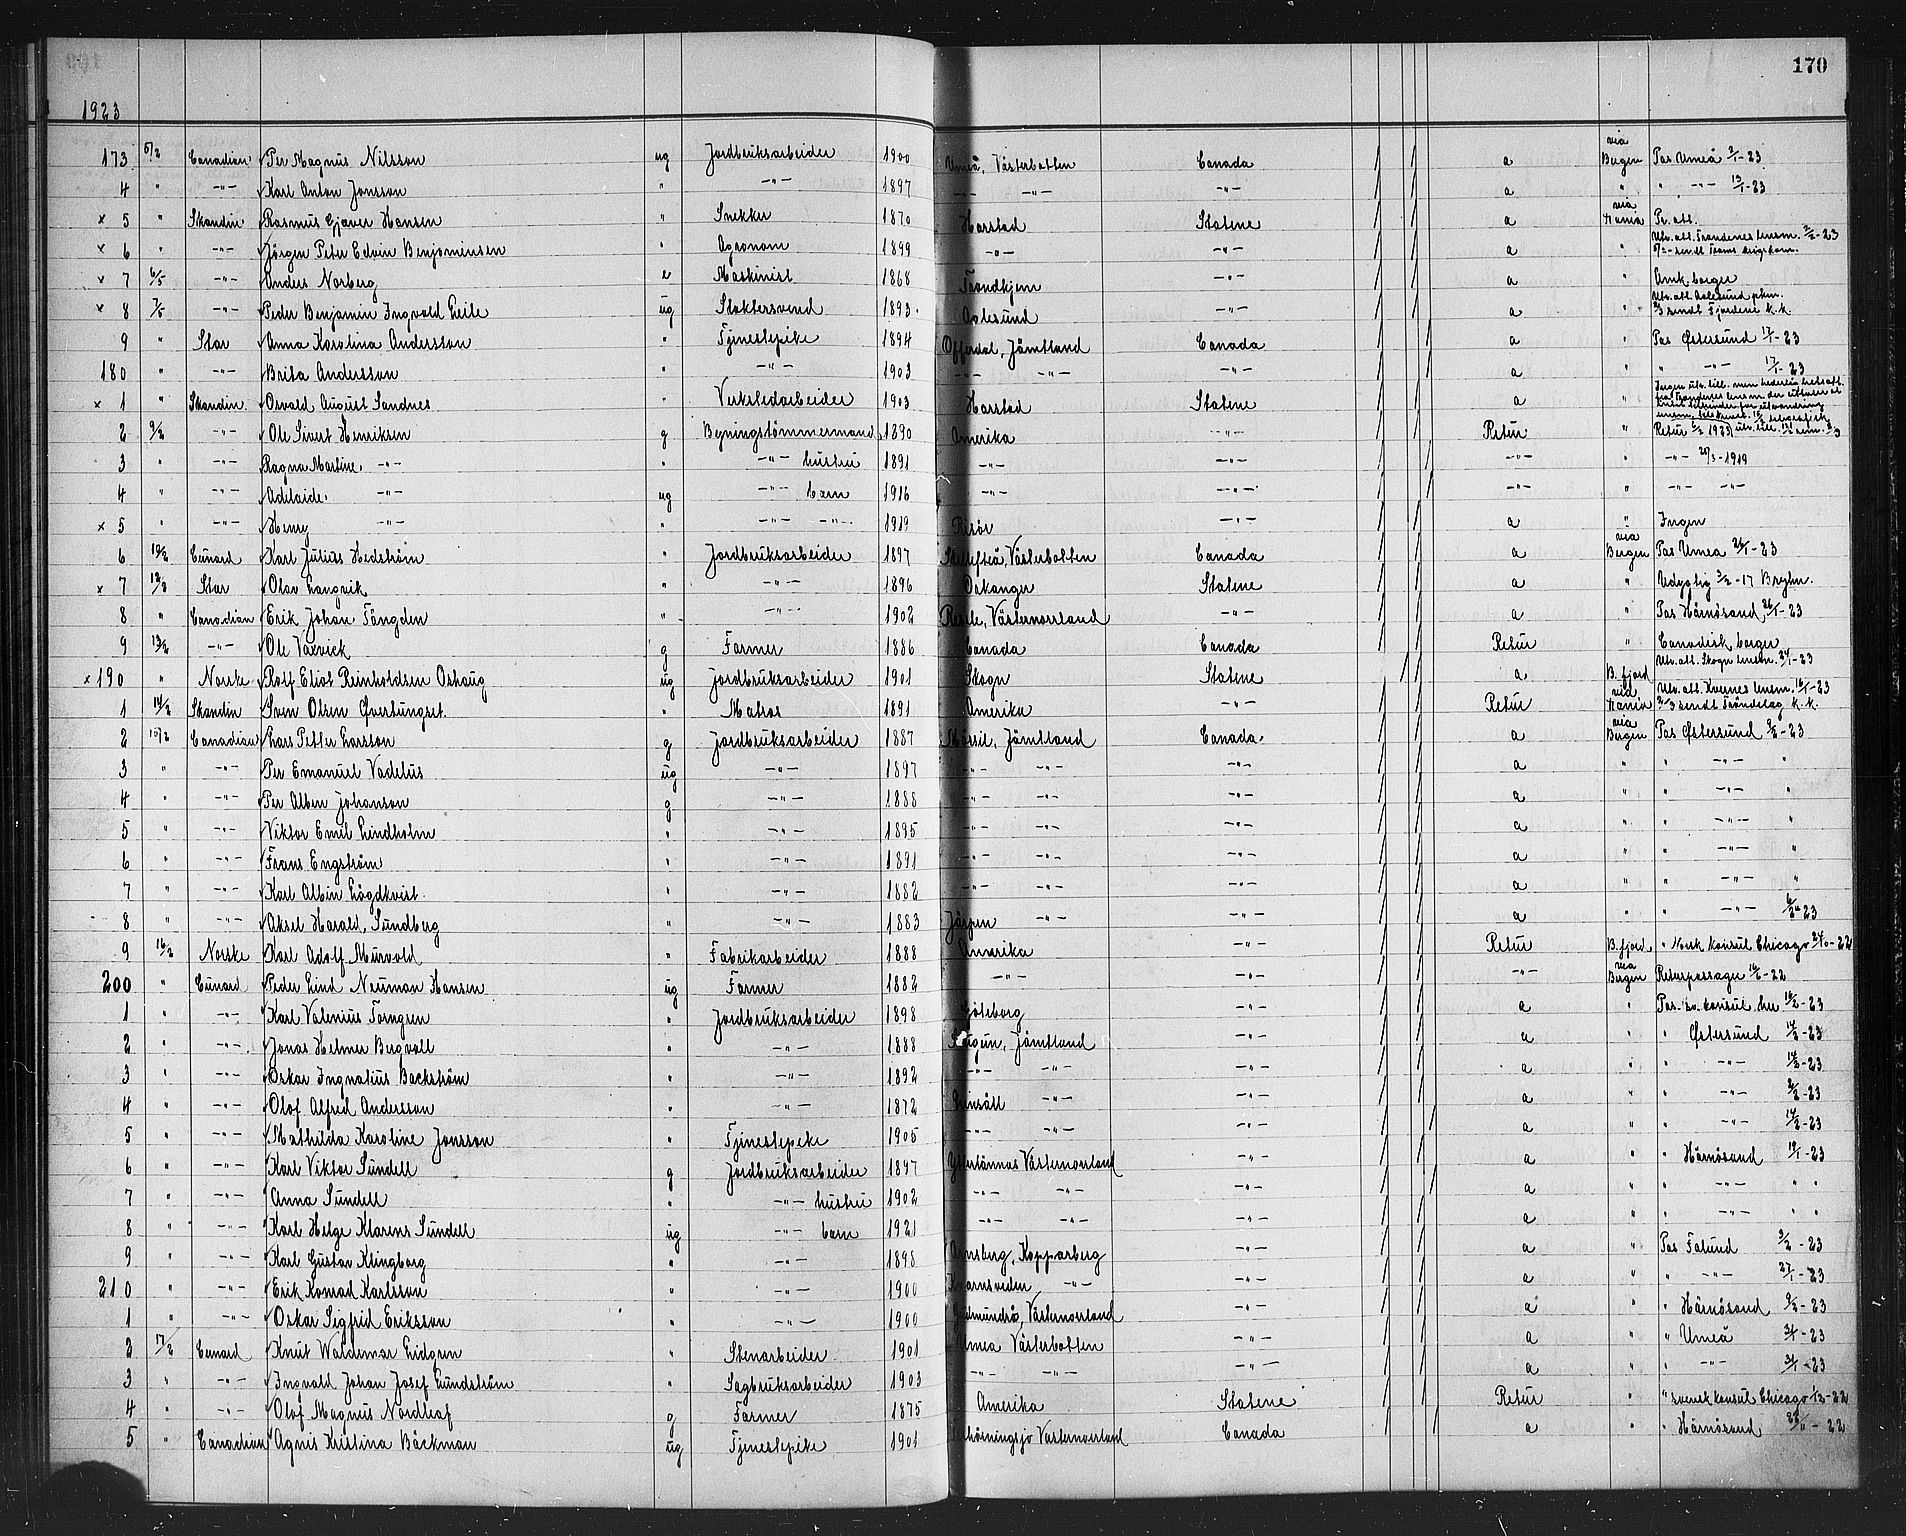 170
1923
173 5/2 Canadian Per Magnus Nilsson ug Jordbruksarbeider 1900 Umeå, Västerbotten Canada a via Bergen Pas Umeå 2/1-23
4 " -"- Karl Anton Jonsson " -"- 1897 -"- -"- -"- a " " -"- 13/1-23
x 5 " Skandin Rasmus Gjaver Hansen " Snekker 1870 Harstad Statene a via Kania Pr. att.
x 6 " -"- Jörgen Peter Edvin Benjaminsen " Agronom 1899 -"- -"- a " Utv. att. Trondenes lensm. 2/2-23
x 7 6/5 -"- Anders Norberg e Maskinist 1868 Trondhjem -"- a " Amk. borger
x 8 7/5 -"- Peder Benjamin Ingvald Leile ug Sloktersvend 1893 Aalesund -"- a " Utv. att. Aalesund pkm. sendt Fjordene k.k.
9 " Star Anna Karolina Andersson " Tjenestepike 1894 Offerdal, Jämtland Canada a " Pas Østersund 17/1-23
180 " -"- Brita Andersson " -"- 1903 -"- -"- -"- a " " -"- 17/1-23
x 1 " Skandin. Osvald August Sandnes " Verkstedarbeider 1903 Harstad Statene a "
2 9/2 -"- Ole Sivert Henriksen g Bygningstömmermand 1890 Amerika -"- Retur "
3 " -"- Ragna Martine -"- " -"- hustru 1891 -"- -"- -"- " -"- 1919
4 " -"- Adelaide -"- ug -"- barn 1916 -"- -"- -"- " -"- -"-
x 5 " -"- Henry -"- " -"- -"- 1919 Risör -"- a " Ingen
6 10/2 Cunard Karl Julius Hedström " Jordbruksarbeider 1897 Skellefteå, Västerbotten Canada a via Bergen Pas Umeå 26/1-23
x 7 12/2 Star Olav Langvik " -"- 1896 Orkanger Statene a " Udygtig 3/2-17 Bryhn.
8 " Canadian Erik Johan Tängden " -"- 1902 Resele, Västernorrland -"- a " Pas Härnösand 26/1-23
9 13/2 -"- Ole Vaxvick g Farmer 1886 Canada Canada Retur " Canadisk borger
x 190 " Norske Rolf Eliot Reinholdsen Oshaug ug Jordbruksarbeider 1901 Skogn Statene a B. fjord Utv. att. Skogn lensm. 24/1-23
1 14/2 Skandin Sven Olsen Øvertungset. " Matros 1891 Amerika Retur via Kania Utv. att. Kvernes lensm. 16/1-23 sendt Tröndelag k.k.
2 15/2 Canadian Lars Petter Larsson g Jordbruksarbeider 1887 Mörsil, Jämtland Canada a via Bergen Pas Østersund 2/2-23
3 " -"- Per Emanuel Vadelus ug -"- 1897 -"- -"- -"- a " " -"- "
4 " -"- Per Alben Johanson g -"- 1888 -"- -"- -"- a " " -"- "
5 " -"- Viktor Emil Lindholm " -"- 1895 -"- -"- -"- a " " -"- "
6 " -"- Frans Engström " -"- 1891 -"- -"- -"- a " " -"- "
7 " -"- Karl Albin Lögdkvist. " -"- 1882 -"- -"- -"- a " " -"- "
8 " -"- Aksel Harald Sundberg " -"- 1883 Järpen -"- -"- a " " -"- 6/2-23
9 16/2 Norske Karl Adolf Murvold " Fabrikarbeider 1888 Amerika -"- Retur B. fjord " Norsk konsul Chicago 24/10-22
200 " Cunard Peder Lind Neuman Hansen ug Farmer 1882 -"- -"- -"- via Bergen Returpassager 16/6-22
1 " -"- Karl Valenius Torngren " Jordbruksarbeider 1898 Göteborg -"- a " Pas. sv. konsul her 16/2-23
2 " -"- Jonas Helmer Bergvall " -"- 1888 Stugun, Jämtland -"- a " " Østersund 14/2-23
3 " -"- Oskar Ingnatius Backström " -"- 1892 -"- -"- -"- a " " -"- 14/2-23
4 " -"- Olof Alfred Anderson " -"- 1872 -"- -"- a " " -"- 2/2-23
5 " -"- Mathilda Karoline Jonsson " Tjenestepike 1905 -"- -"- -"- a " " -"- 14/2-23
6 " -"- Karl Viktor Sundell g Jordbruksarbeider 1897 Ytterlännäs Västernorrland -"- a " " Härnösand 19/1-23
7 " -"- Anna Sundell " -"- hustru 1902 -"- -"- -"- a " " -"- " "
8 " -"- Karl Helge Klarens Sundell ug -"- barn 1921 -"- -"- -"- a " " -"- " "
9 " -"- Karl Gustav Klingborg " -"- 1898 Arnsberg, Kopparberg -"- a " Pas Falund 3/2-23
210 " -"- Erik Konrad Karlsson " -"- 1900 Kvarnsveden -"- -"- a " " -"- 27/1-23
1 " -"- Oskar Sigfrid Eriksson " -"- 1900 Gudmundrå, Västernorrland -"- a " " Härnösand 9/2-23
2 17/2 Cunard Knut Waldemar Lidgren " Stenarbeider 1901 Umeå Västerbotten -"- a " " Umeå 31/1-23
3 " -"- Ingvald Johan Josef Lundström " Sagbruksarbeider 1903 -"- -"- -"- a " " -"- 31/1-23
4 " -"- Olof Magnus Nordleaf g Farmer 1875 Amerika Statene Retur " " svensk konsul Chicago 1/12-22
5 " Canadian Agnes Kristina Bäckman ug Tjenestepike 1901 Västernorrland Canada a " " Härnösand 28/11-22